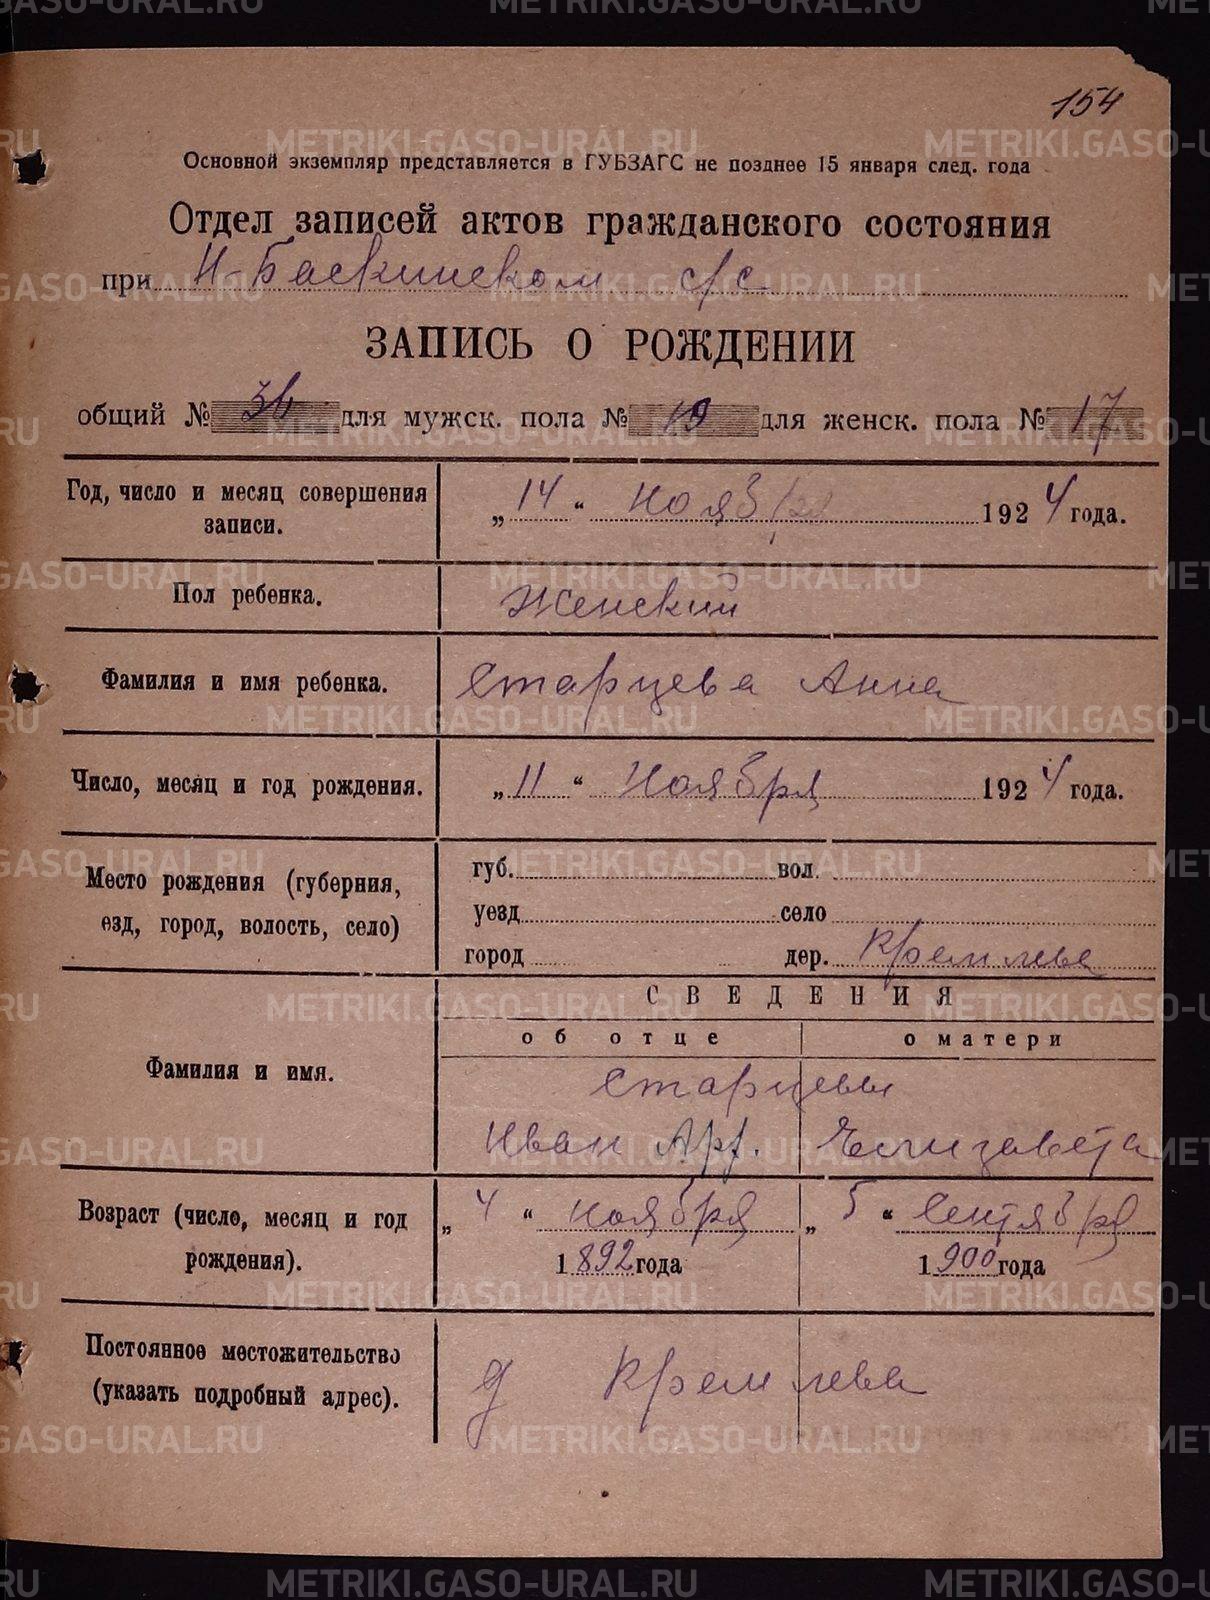 154
Основной экземпляр представляется в ГУБЗАГС не позднее 15 января след. года
Отдел записей актов гражданского состояния
при Н-Баскинском с/с
ЗАПИСЬ О РОЖДЕНИИ
общий № 36 для мужск. пола № 19 для женск. пола № 17
Год, число и месяц совершения записи. „14“ Ноября 1924 года.
Пол ребенка. Женский
Фамилия и имя ребенка. Старцева Анна
Число, месяц и год рождения. „11“ Ноября 1924 года.
Место рождения (губерния, езд, город, волость, село)
губ. вол.
уезд село
город дер. Кремлева
СВЕДЕНИЯ
об отце о матери
Фамилия и имя. Старцевы
Иван Арф. Елизавета
Возраст (число, месяц и год рождения). „4“ ноября 1892 года „5“ Сентября 1900 года
Постоянное местожительство (указать подробный адрес). д Кремлева
METRIKI.GASO-URAL.RU